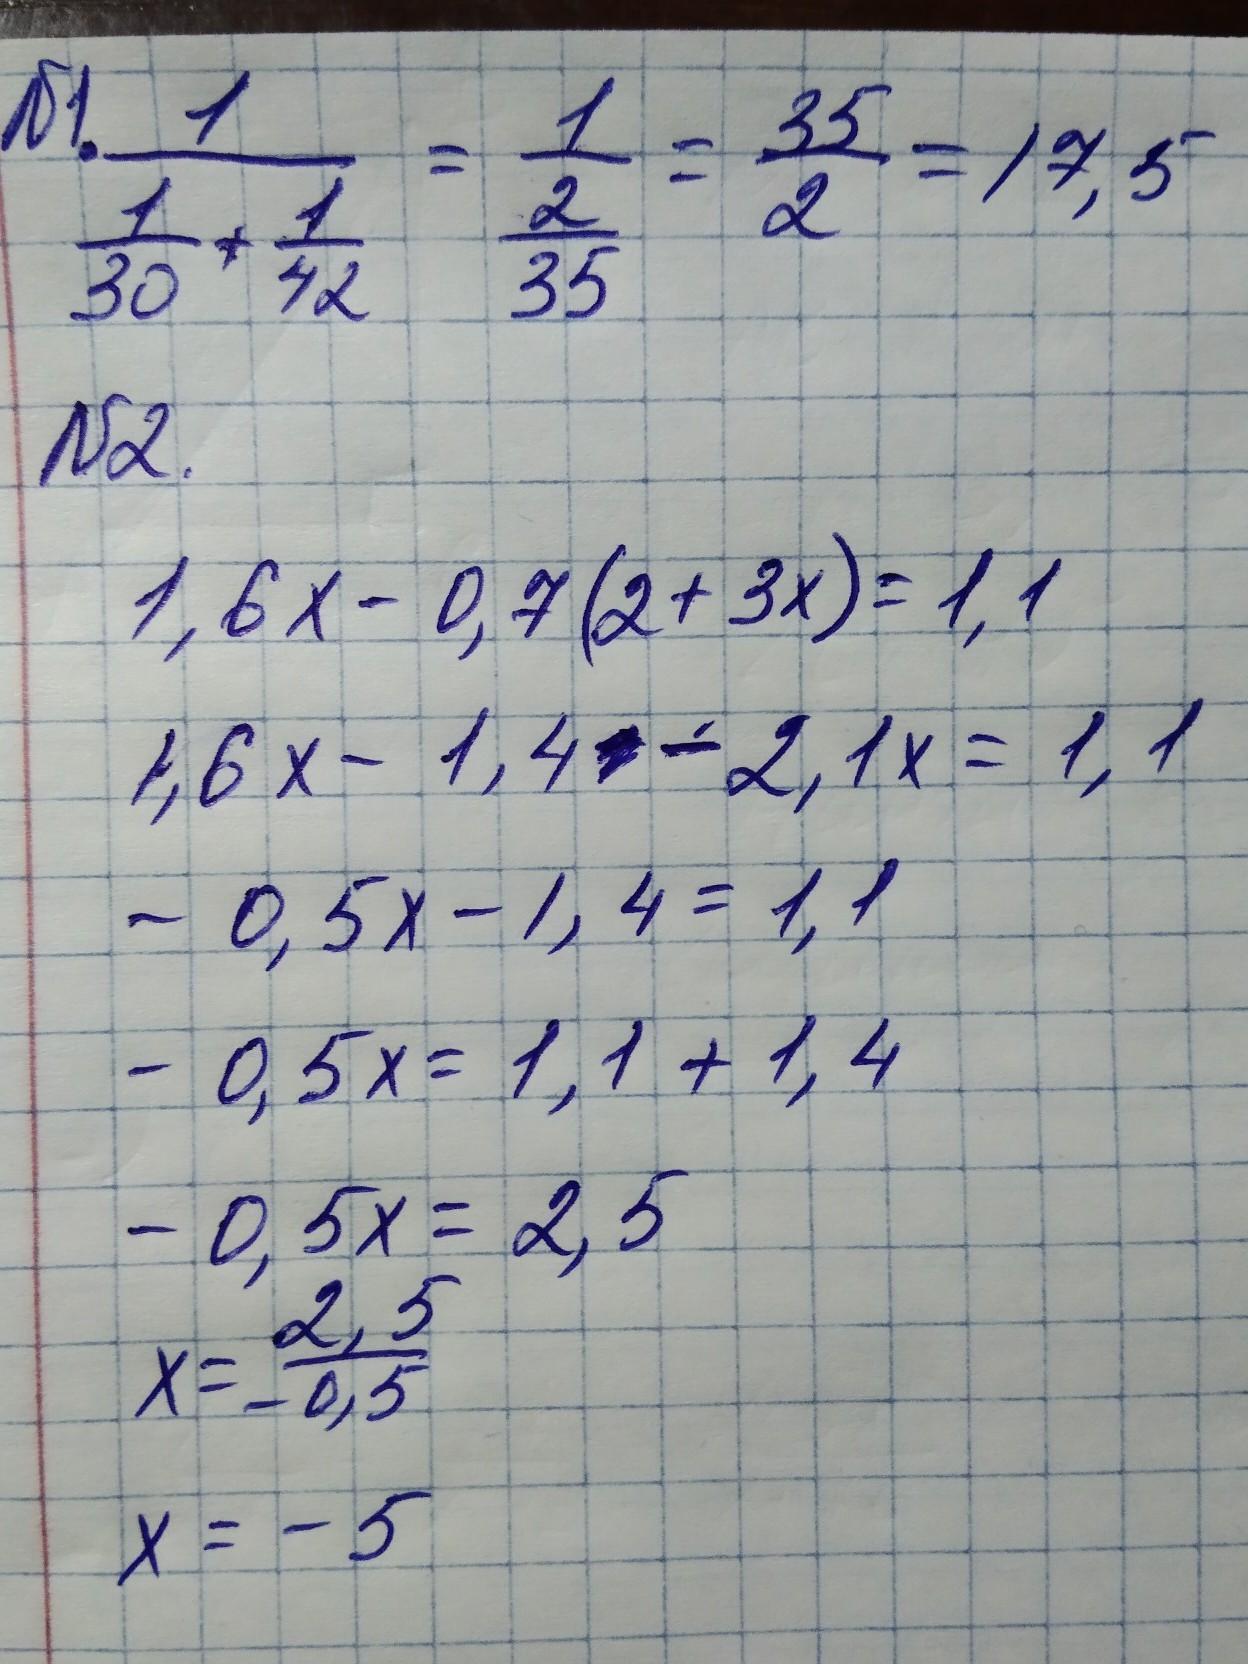 №1. 1/(1/30 + 1/42) = 1/(2/35) = 35/2 = 17,5
№2.
1,6x - 0,7(2+3x) = 1,1
1,6x - 1,4 - 2,1x = 1,1
- 0,5x - 1,4 = 1,1
- 0,5x = 1,1 + 1,4
- 0,5x = 2,5
x = 2,5/-0,5
x = - 5